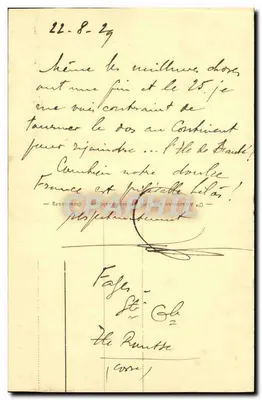 22-8-29
Même les meilleures choses
ont une fin et le 25 je
me vois contraint de
tourner le dos au Continent
pour rejoindre ... l'Ile de Beauté!
Combien notre douce
France est
CPAPHIL
respectueusement
Ile Rousse
(Corse)